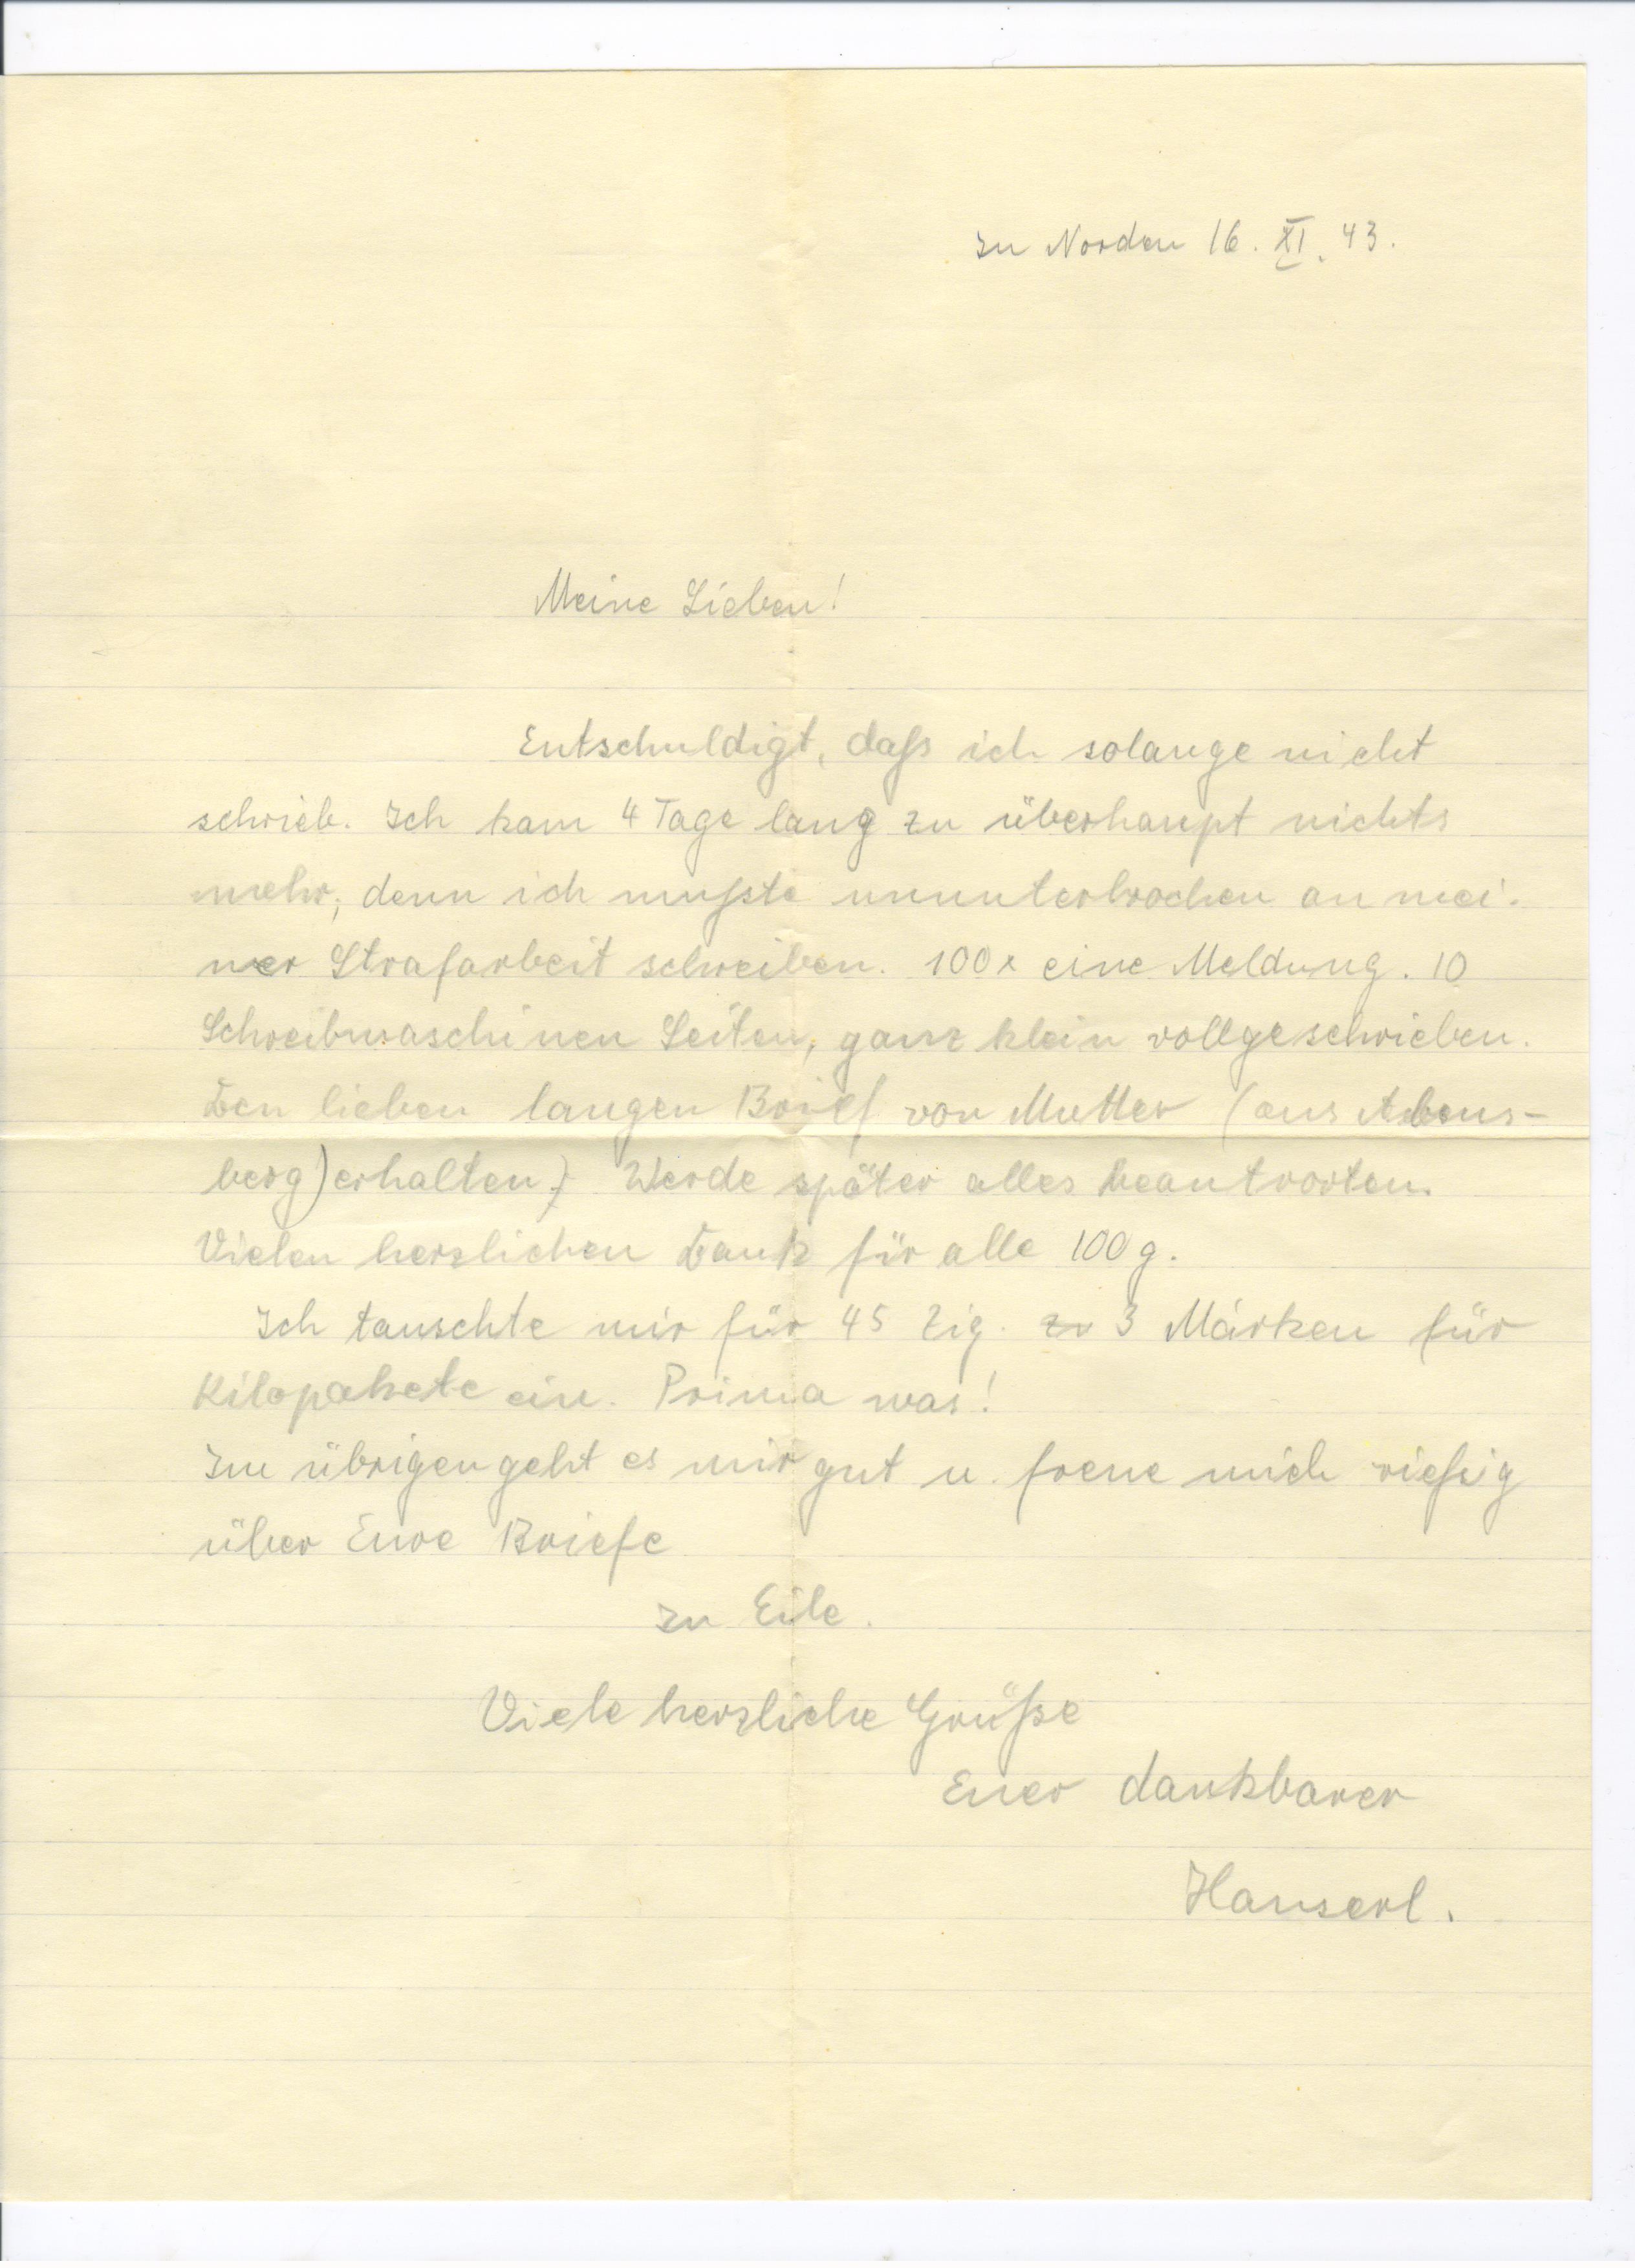 In Norden 16. XI. 43.
Meine Lieben!
Entschuldigt, daß ich solange nicht
schrieb. Ich kam 4 Tage lang zu überhaupt nichts
mehr, denn ich mußte ununterbrochen an mei-
ner Strafarbeit schreiben. 100x eine Meldung. 10
Schreibmaschinen Seiten, ganz klein vollgeschrieben.
Den lieben langen Brief von Mutter (aus Abens-
berg) erhalten. Werde später alles beantworten.
Vielen herzlichen Dank für alle 100 g.
Ich tauschte mir für 45 Zig. 3 Märken für
Kilopakete ein. Prima was!
Im übrigen geht es mir gut u. freue mich rießig
über Eure Briefe
In Eile.
Viele herzliche Grüße
Euer dankbarer
Hanserl.